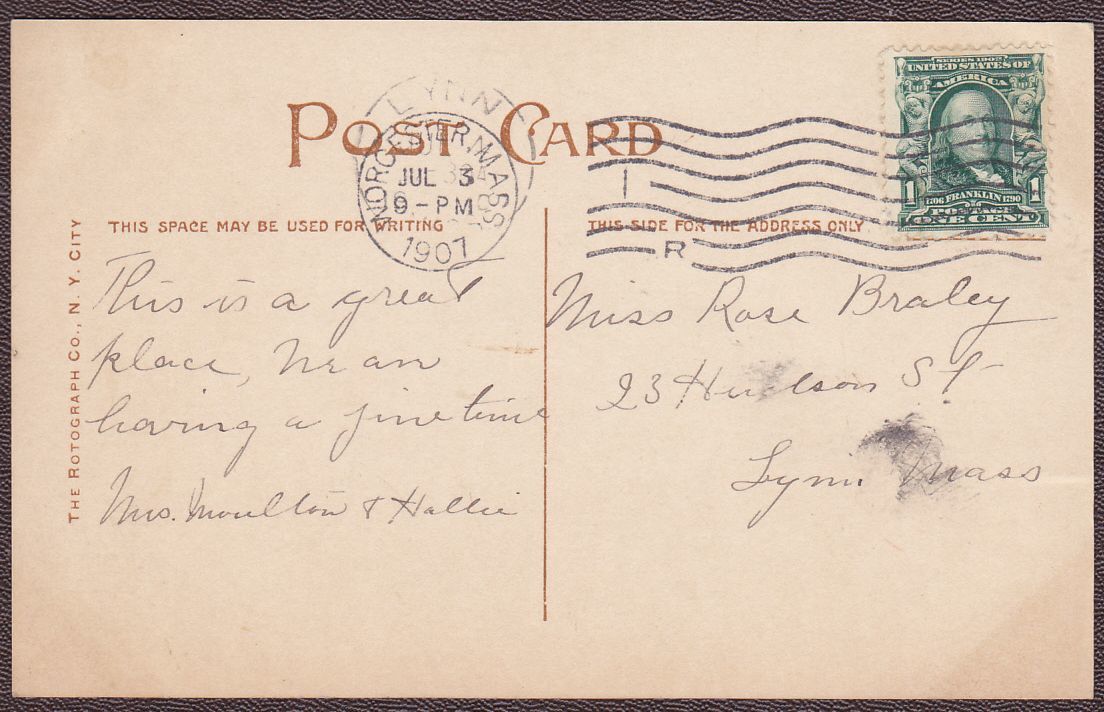 POST CARD
LYNN
WORCESTER, MASS.
JUL 3
9-PM
1907
1
R
SERIES 1902
UNITED STATES OF
AMERICA
1 1
1706 FRANKLIN 1790
POSTAGE
ONE CENT
THIS SPACE MAY BE USED FOR WRITING
THIS SIDE FOR THE ADDRESS ONLY
THE ROTOGRAPH CO., N. Y. CITY
This is a great
place, We are
having a fine time
Mrs. Moulton & Hallie
Miss Rose Braley
23 Hudson St
Lynn Mass